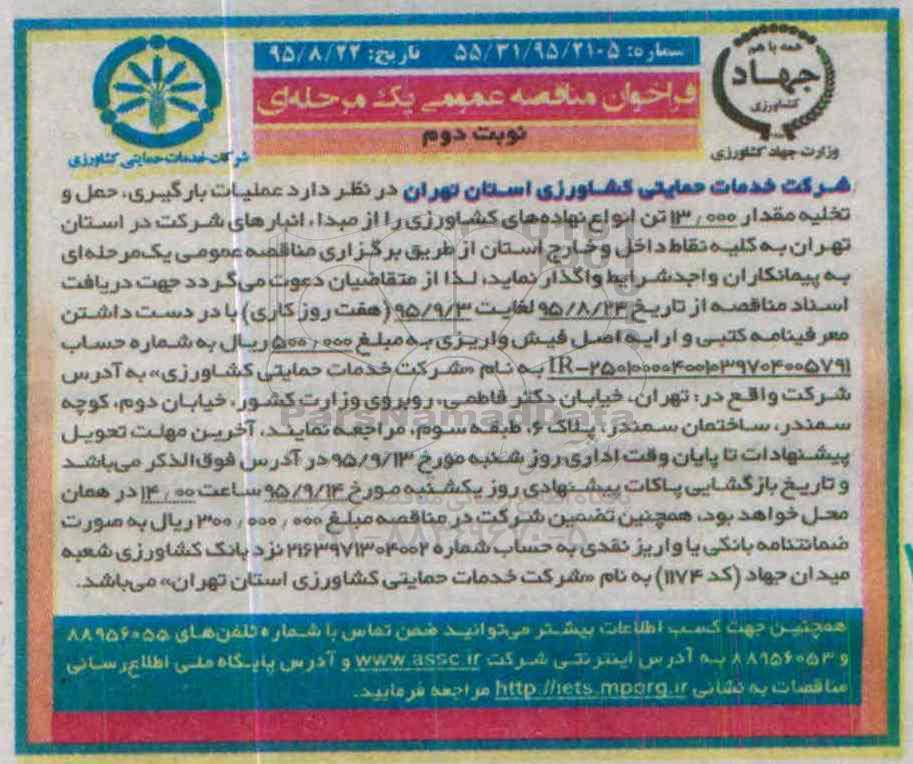 همه با هم
جهاد
کشاورزی
وزارت جهاد کشاورزی
شماره: ۵۵/۳۱/۹۵/۲۱۰۵ تاریخ: ۹۵/۸/۲۲
فراخوان مناقصه عمومی یک مرحله‌ای
نوبت دوم
شرکت خدمات حمایتی کشاورزی
شرکت خدمات حمایتی کشاورزی استان تهران در نظر دارد عملیات بارگیری، حمل و
تخلیه مقدار ۱۳٫۰۰۰ تن انواع نهاده‌های کشاورزی را از مبدا، انبارهای شرکت در استان
تهران به کلیه نقاط داخل و خارج استان از طریق برگزاری مناقصه عمومی یک‌مرحله‌ای
به پیمانکاران واجدشرایط واگذار نماید، لذا از متقاضیان دعوت می‌گردد جهت دریافت
اسناد مناقصه از تاریخ ۹۵/۸/۲۴ لغایت ۹۵/۹/۳ (هفت روز کاری) با در دست داشتن
معرفینامه کتبی و ارایه اصل فیش واریزی به مبلغ ۵۰۰٫۰۰۰ ریال به شماره حساب
به نام «شرکت خدمات حمایتی کشاورزی» به آدرس
شرکت واقع در: تهران، خیابان دکتر فاطمی، روبروی وزارت کشور، خیابان دوم، کوچه
سمندر، ساختمان سمندر، پلاک ۶، طبقه سوم، مراجعه نمایند. آخرین مهلت تحویل
پیشنهادات تا پایان وقت اداری روز شنبه مورخ ۹۵/۹/۱۳ در آدرس فوق‌الذکر می‌باشد
و تاریخ بازگشایی پاکات پیشنهادی روز یکشنبه مورخ ۹۵/۹/۱۴ ساعت ۱۴٫۰۰ در همان
محل خواهد بود، همچنین تضمین شرکت در مناقصه مبلغ ۳۰۰٫۰۰۰٫۰۰۰ ریال به صورت
ضمانتنامه بانکی یا واریز نقدی به حساب شماره ۲۱۶۳۹۷۱۳۰۴۰۰۲ نزد بانک کشاورزی شعبه
میدان جهاد (کد ۱۱۷۴) به نام «شرکت خدمات حمایتی کشاورزی استان تهران» می‌باشد.
همچنین جهت کسب اطلاعات بیشتر می‌توانید ضمن تماس با شماره تلفن‌های ۸۸۹۵۶۰۵۵
و ۸۸۹۵۶۰۵۳ به آدرس اینترنتی شرکت www.assc.ir و آدرس پایگاه ملی اطلاع‌رسانی
مناقصات به نشانی http://iets.mporg.ir مراجعه فرمایید.
ParsNamadData